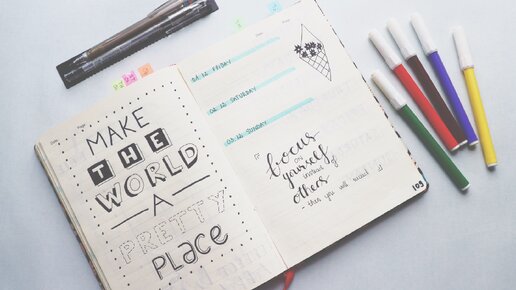 MAKE
THE
WORLD
A
PRETTY
PLACE
FRIDAY
SATURDAY
SUNDAY
focus
ON
yourself
instead of
others
- then you will
109